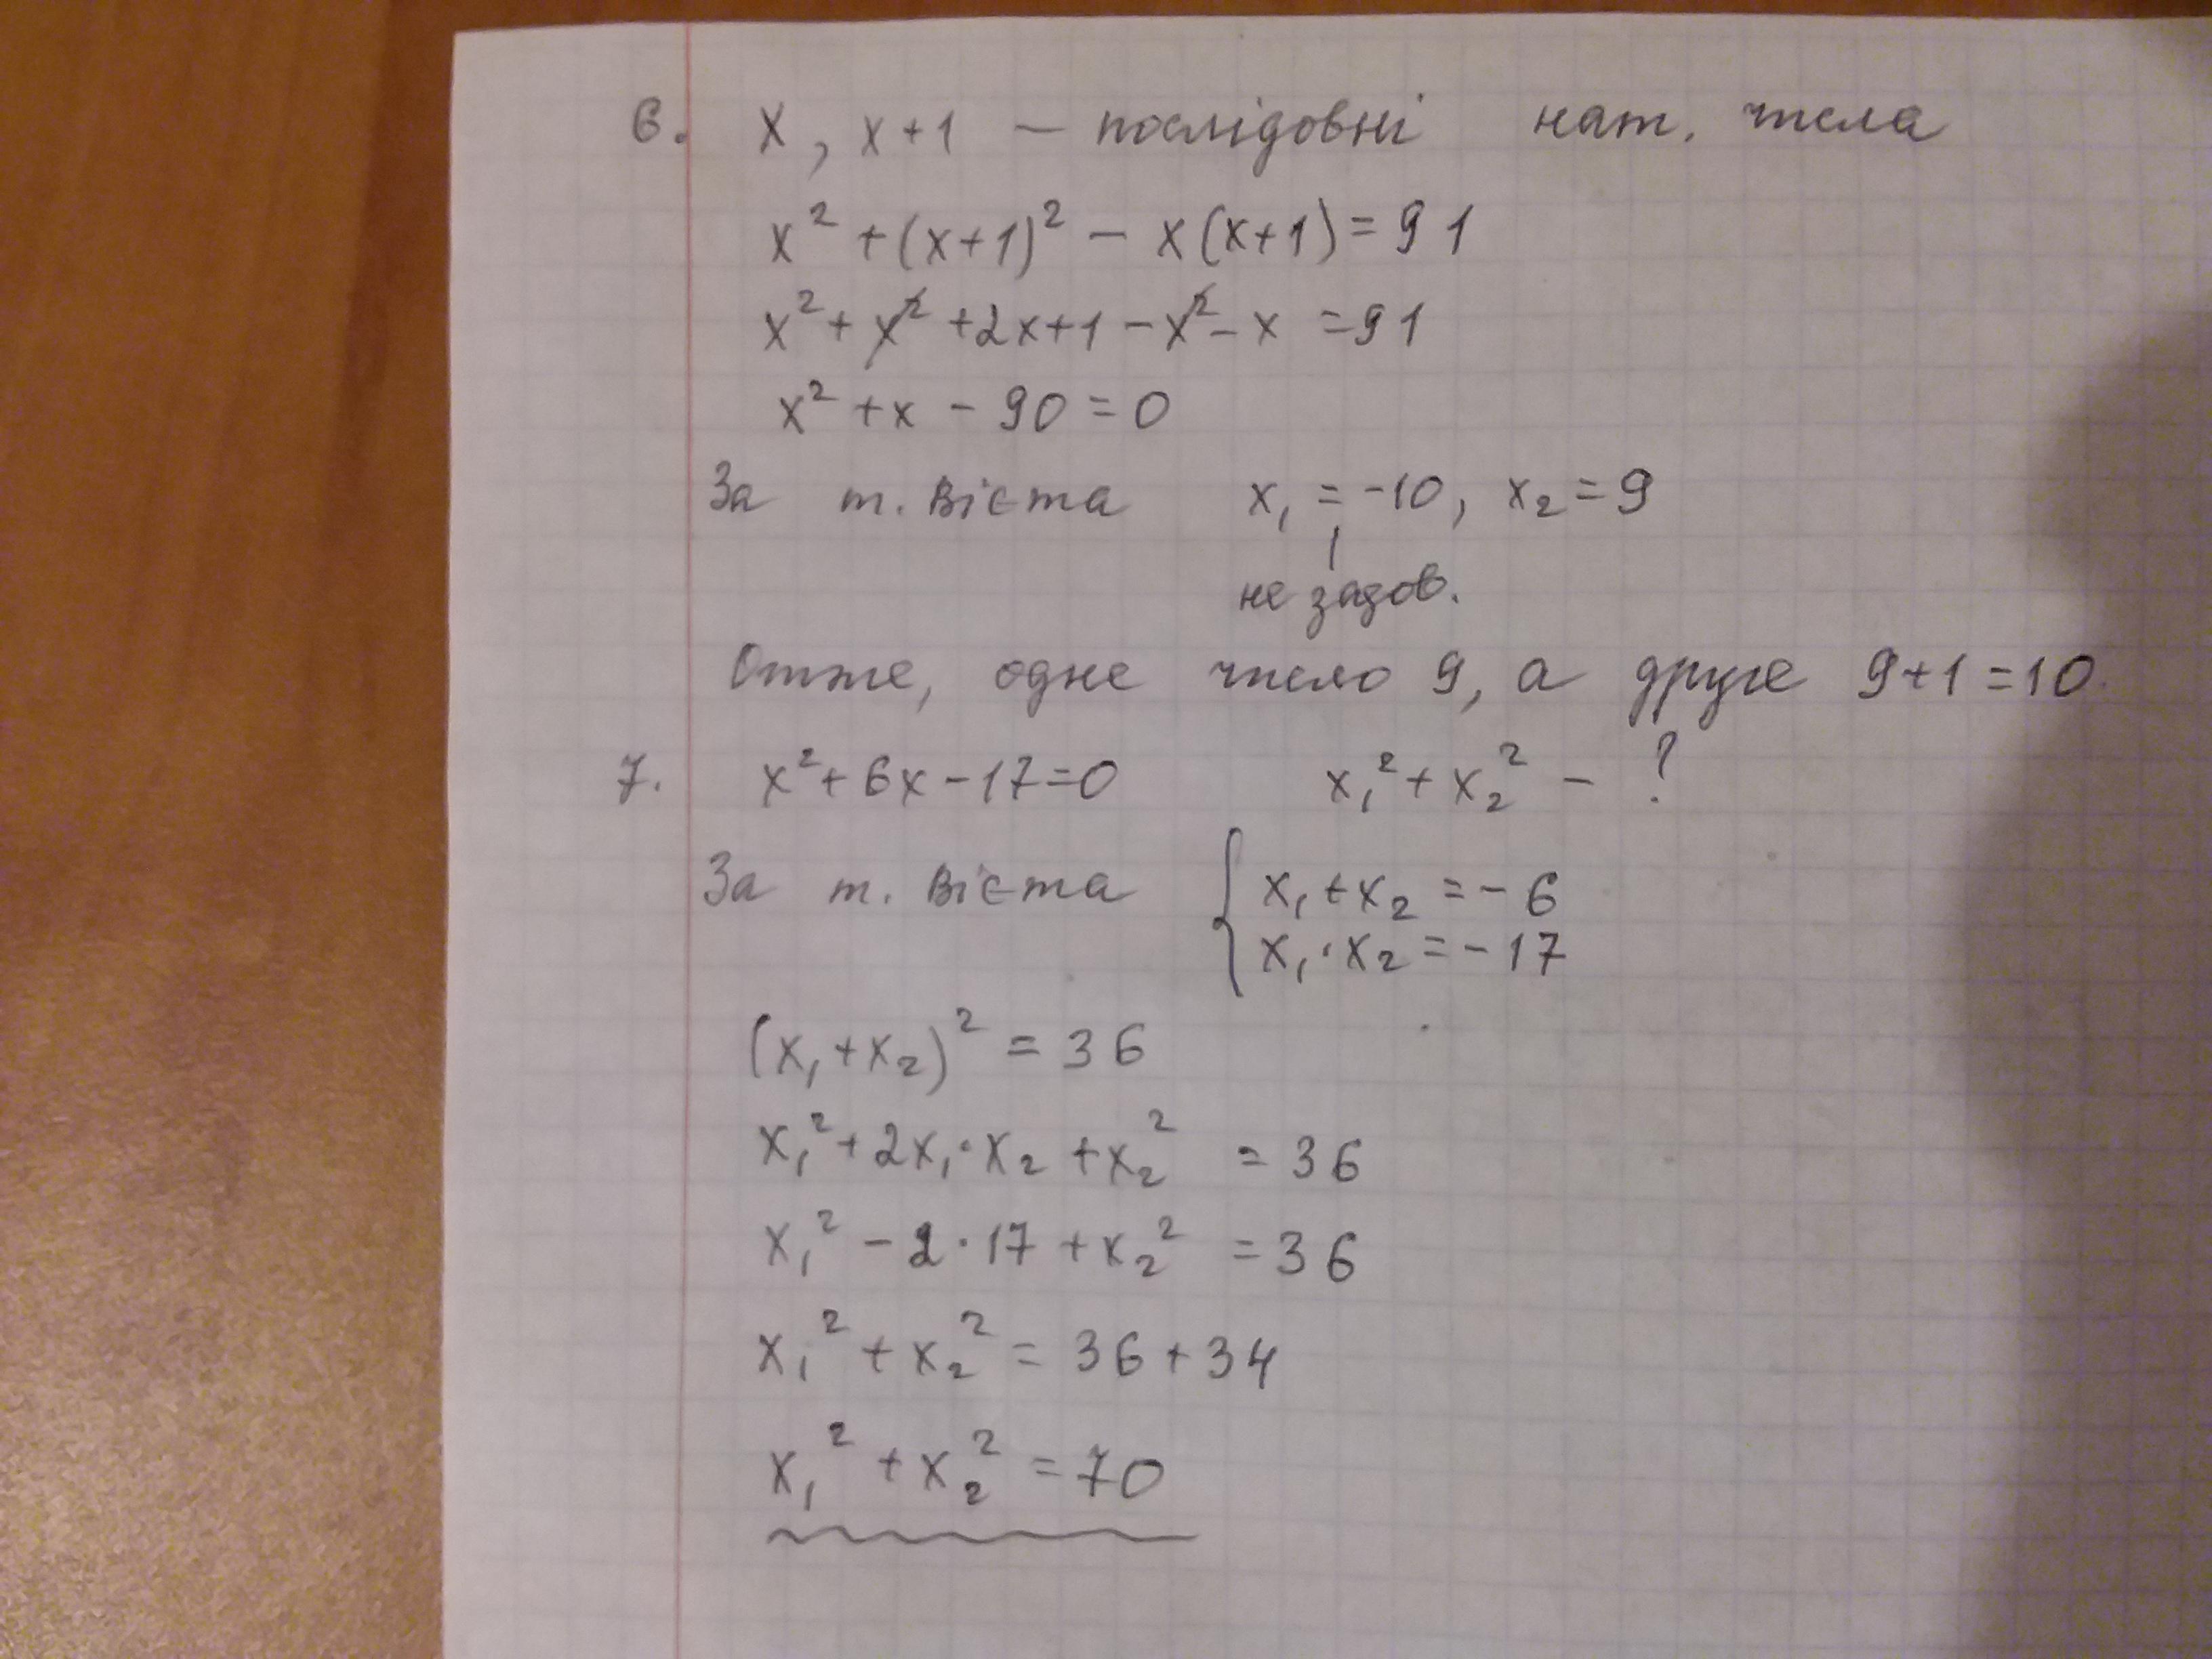 6. x, x+1 — послідовні нат. числа
x² + (x+1)² − x(x+1) = 91
x² + x² + 2x + 1 − x² − x = 91
x² + x − 90 = 0
За т. Вієта x₁ = −10, x₂ = 9
не задов.
Отже, одне число 9, а друге 9+1=10.
7. x² + 6x − 17 = 0 x₁² + x₂² − ?
За т. Вієта { x₁ + x₂ = −6
x₁ · x₂ = −17
(x₁ + x₂)² = 36
x₁² + 2x₁ · x₂ + x₂² = 36
x₁² − 2 · 17 + x₂² = 36
x₁² + x₂² = 36 + 34
x₁² + x₂² = 70